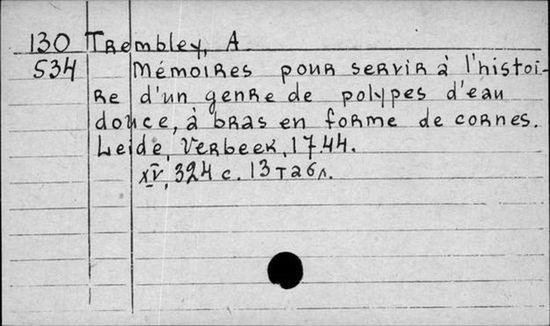 130 Trembley, A
534 Mémoires pour servir à l'histoi-
re d'un genre de polypes d'eau
douce, à bras en forme de cornes.
Leide, Verbeek, 1744.
XV, 324 с. 13 табл.